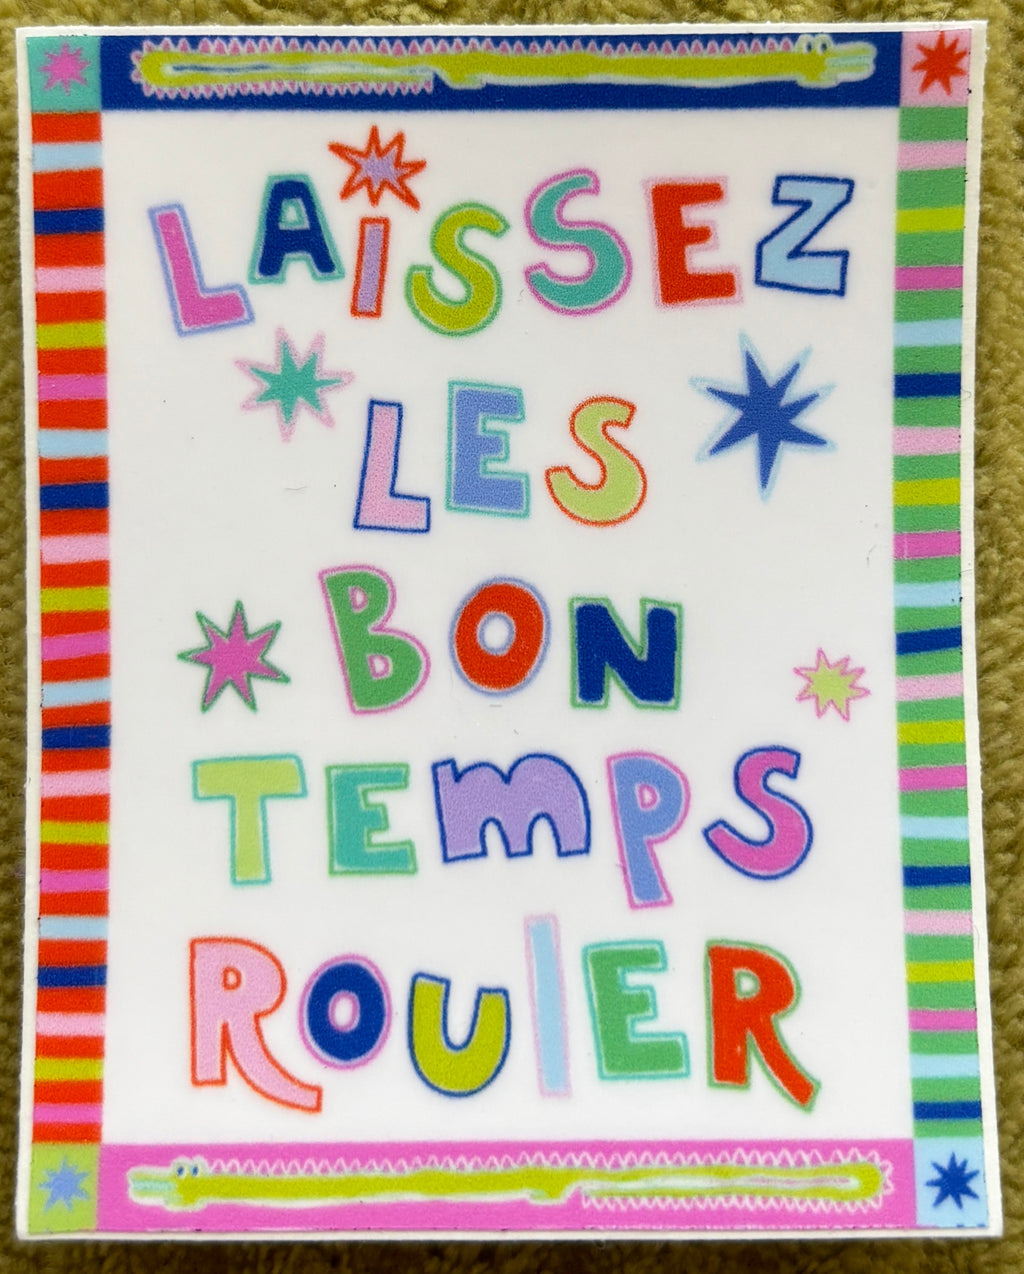 LAISSEZ
LES
BON
TEMPS
ROULER